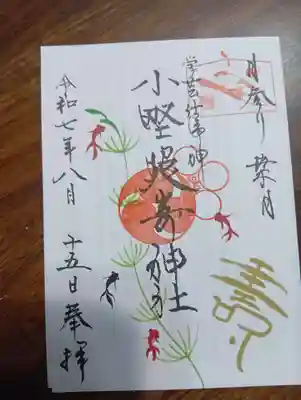 月参り 葉月
学芸仕事の神
小野照崎神社
令和七年八月 十五日奉拝